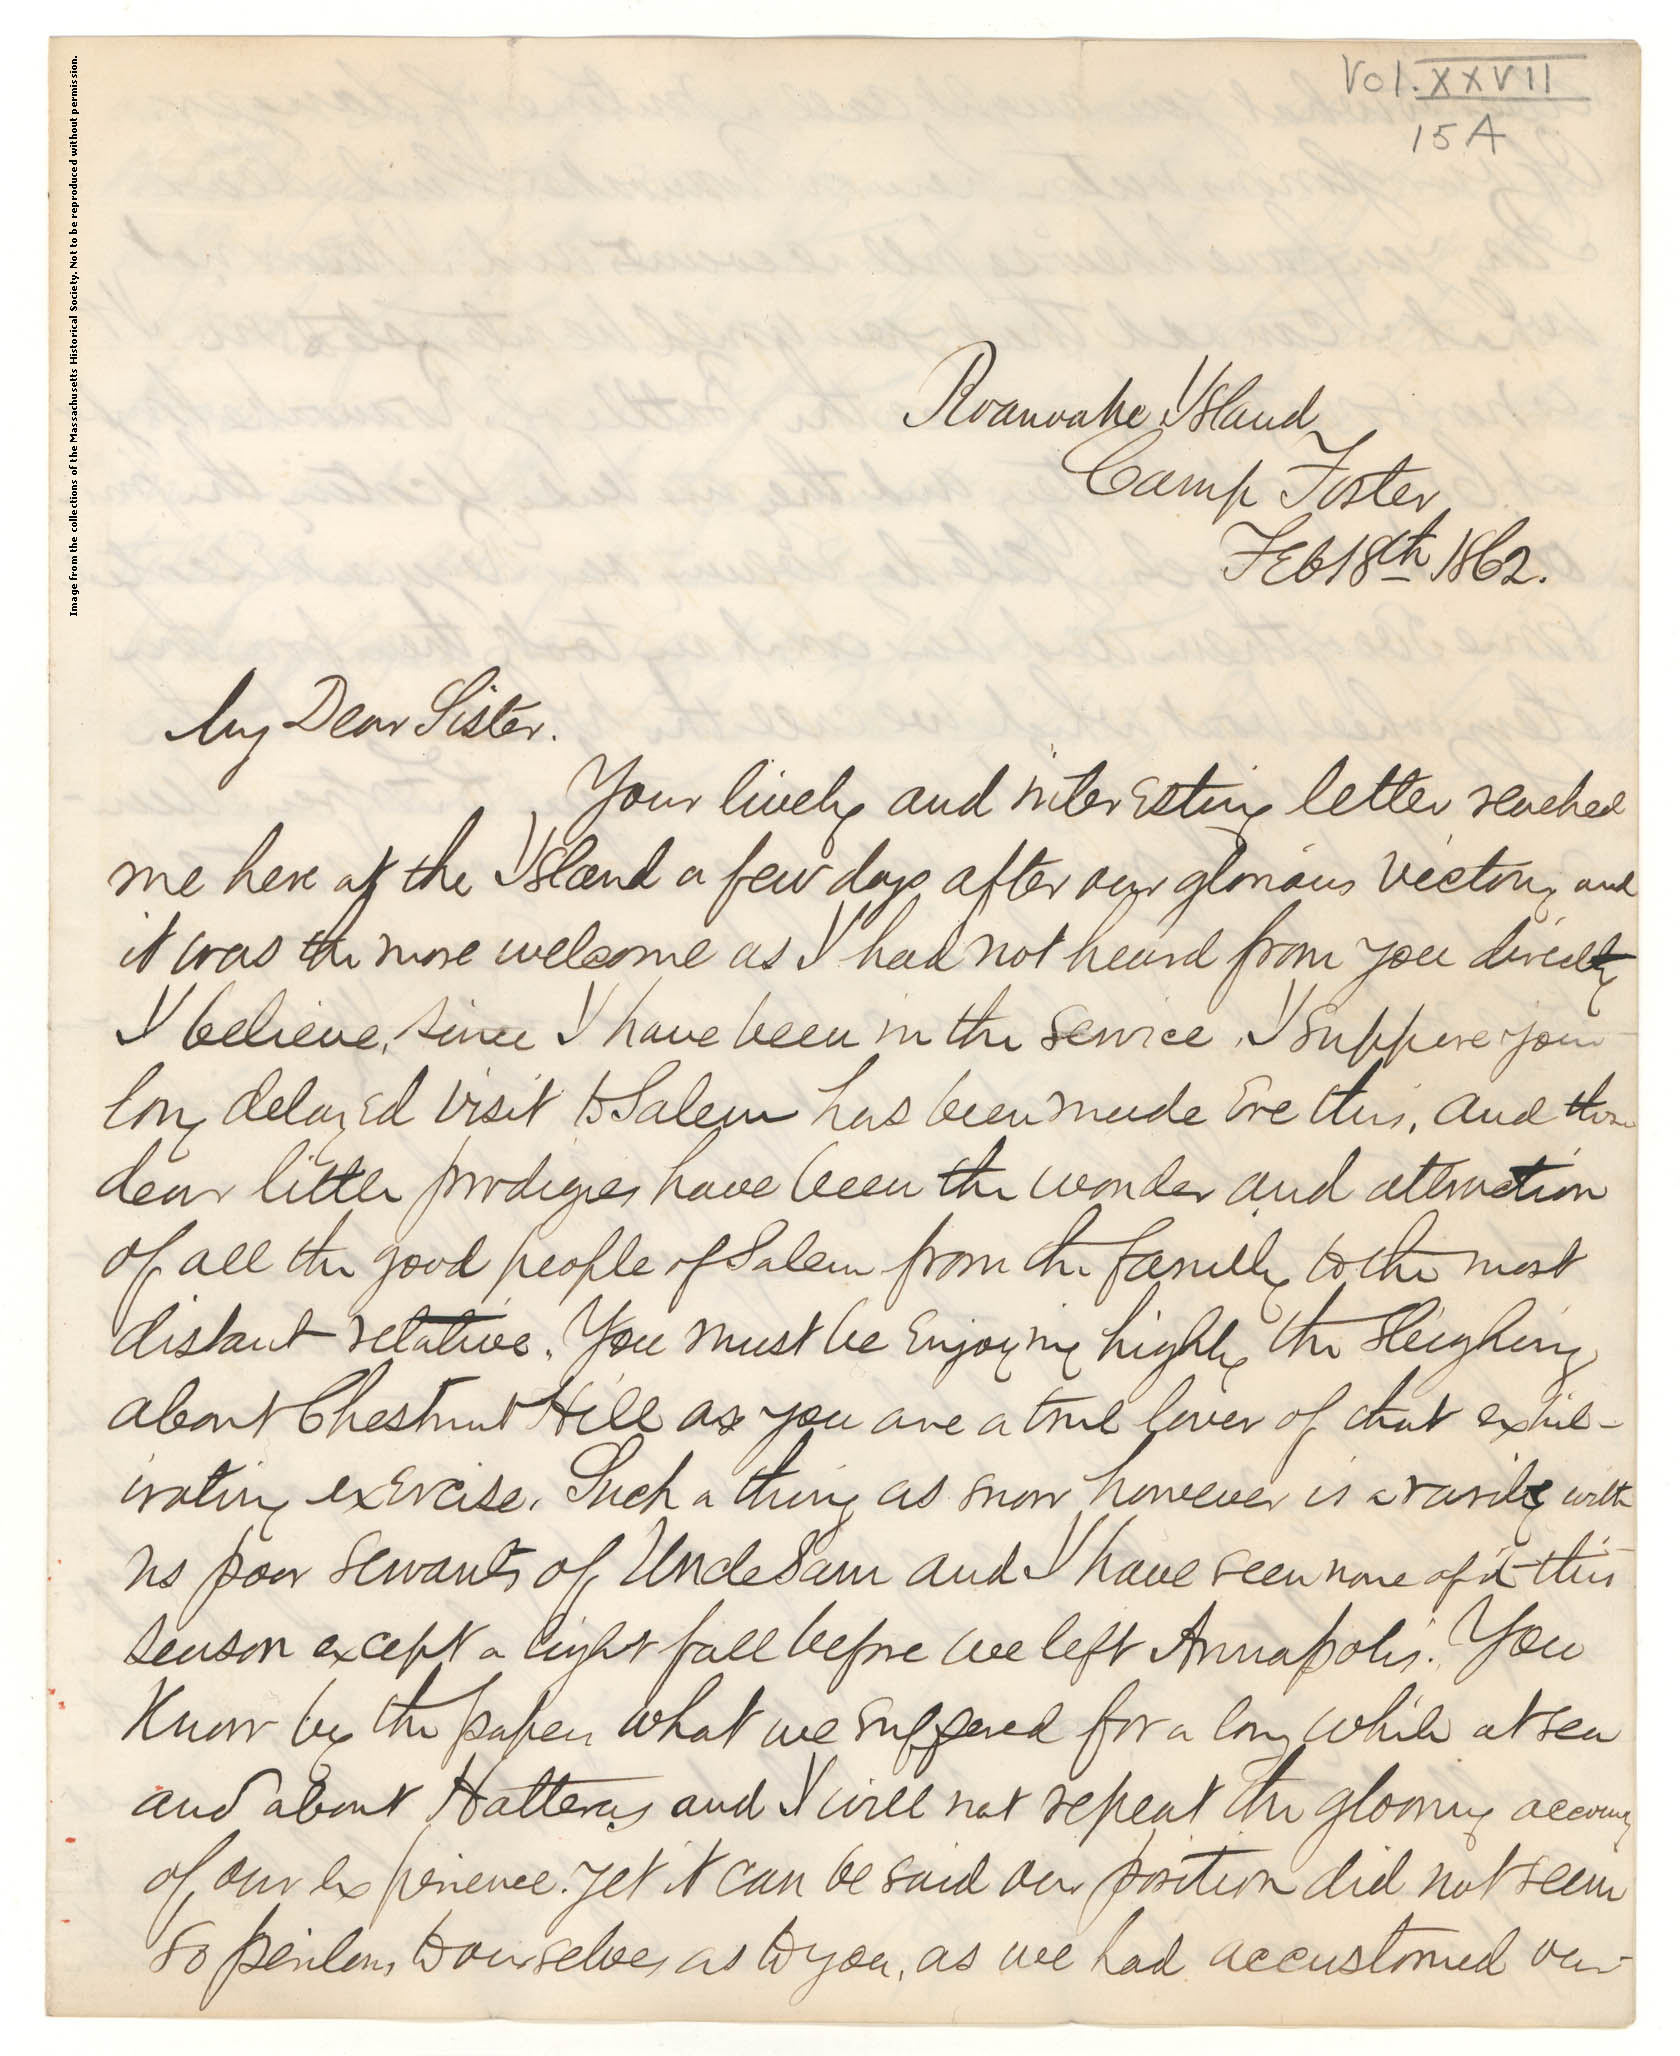 Vol. XXVII
15A
Image from the collections of the Massachusetts Historical Society. Not to be reproduced without permission.
Roanoake Island
Camp Foster
Feb 18th 1862.
My Dear Sister.
Your lively and interesting letter reached
me here at the Island a few days after our glorious victory and
it was the more welcome as I had not heard from you directly
I believe, since I have been in the service. I suppose your
long delayed visit to Salem has been made ere this, and those
dear little prodigies have been the wonder and attraction
of all the good people of Salem from the family to the most
distant relative. You must be enjoying highly the sleighing
about Chestnut Hill as you are a true lover of that exhil-
irating exercise. Such a thing as snow however is a rarity with
us poor servants of Uncle Sam and I have seen none of it this
season except a light fall before we left Annapolis. You
know by the papers what we suffered for a long while at sea
and about Hatteras and I will not repeat the gloomy account
of our experience. Yet it can be said our position did not seem
so perilous to ourselves as to you, as we had accustomed our-